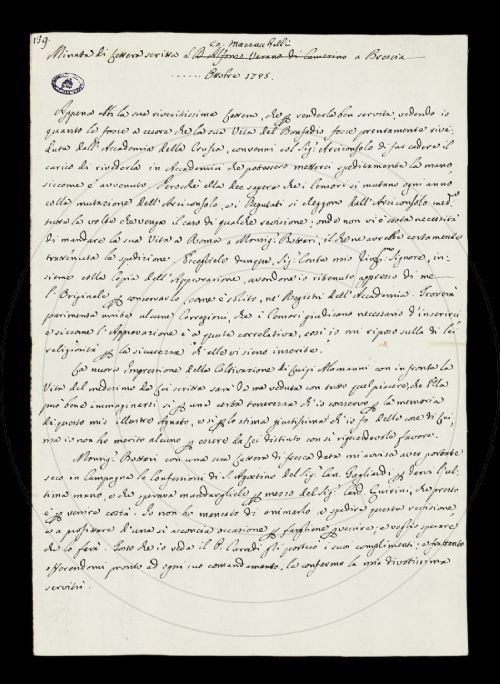 139.
Co: Mazzuchelli
Minuta di Lettera scritta a D. Alfonso Varano di Camerino a Brescia
...... Ottobre 1745.
Appena ebbi la sua riveritissima Lettera, che per renderla ben servita, vedendo io
quanto le fosse a cuore che la sua Vita del Bonfadio fosse prontamente rive-
duta dall'Accademia della Crusca, convenni col Sig.r Arciconsolo di far cadere il
carico di rivederla in Accademici che potessero metterci speditamente la mano,
siccome è avvenuto. Perochè ella dee sapere che i Censori si mutano ogni anno
colla mutazione dell'Arciconsolo, e i Deputati si eleggono dall'Arciconsolo med.mo
tutte le volte che venga il caso di qualche revisione; onde non vi è stata necessità
di mandare la sua Vita a Roma a Monsig.r Bottari, il che ne avrebbe certamente
trascinata la spedizione. Eccoglielo dunque Sig.r Conte mio Sig.re, in-
sieme colla Copia dell'Approvazione, avendone io ritenuto appresso di me
l'Originale per conservarlo, come è solito, ne' Registri dell'Accademia. Troverà
parimente unite alcune Correzioni, che i Censori giudicano necessario d'inserirci
e siccome l'Approvazione è a queste correlativa, così io mi riposo sulla di lei
religiosità per la sicurezza ch'elle vi sieno inserite.
La nuova Impressione della Coltivazione di Luigi Alamanni con in fronte la
Vita del medesimo da Lei scritta sarà da me veduta con tutto quel piacere, che Ella
può bene immaginarsi sì per una certa tenerezza ch'io conservo per la memoria
di questo mio illustre Agnato, e sì per la stima giustissima ch'io fo delle cose di Lei,
ma io non ho merito alcuno per essere da Lei distinto con sì riguardevole favore.
Monsig.r Bottari con una sua Lettera di fresca data mi avvisa aver portate
seco in Campagna le Confessioni di S. Agostino del Sig.r Can. Gagliardi per darvi l'ul-
tima mano, e che sperava mandargliele per mezzo del Sig.r Card. Quirini, che presto
è per venire costà. Io non ho mancato di animarlo a spedire questa revisione
e a profittare d'una sì acconcia occasione per fargliene pervenire, e voglio sperare
che lo farà. Tosto che io veda il P. Corradi gli porterò i suoi complimenti; e frattanto
offerendomi pronto ad ogni suo comandamento, le confermo la mia divotissima
servitù.